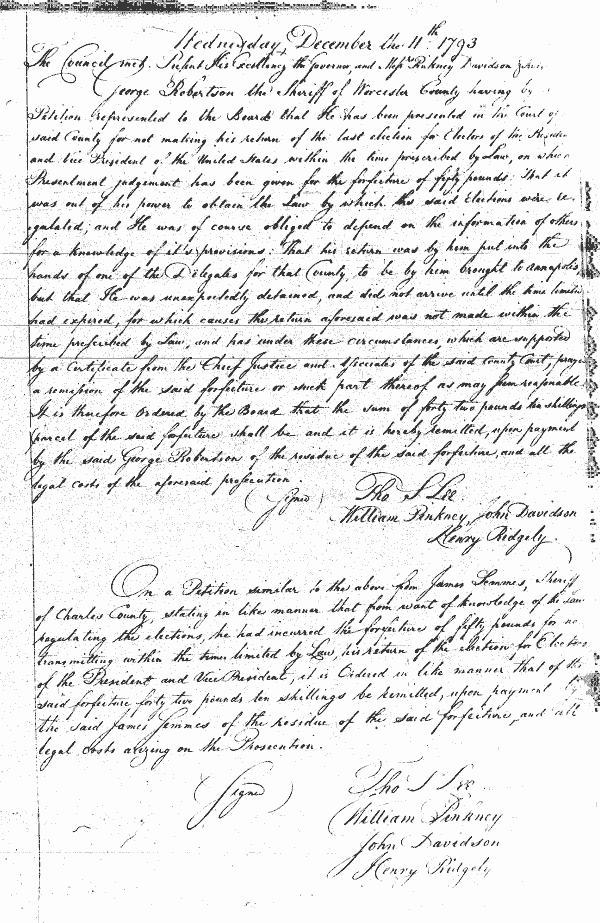 Wednesday, December the 11th 1793
The Council met. Present His Excellency the Governor, and Messrs Pinkney Davidson &
George Robertson the Sheriff of Worcester County having by
Petition represented to the Board that He has been presented in the Court of
said County for not making his return of the last election for Electors of the
and Vice President of the United States within the time prescribed by Law, on which
Presentment judgement has been given for the forfeiture of fifty pounds: That it
was out of his power to obtain the Law by which the said Elections were re-
gulated; and He was of course obliged to depend on the information of others
for a knowledge of it's provisions: That his return was by him put into the
hands of one of the Delegates for that County, to be by him brought to annapolis,
but that He was unexpectedly detained, and did not arrive until the time limited
had expired, for which causes the return aforesaid was not made within the
time prescribed by Law, and has under these circumstances, which are supported
by a Certificate from the Chief Justice and Associates of the said County Court, pray
a remission of the said forfeiture or such part thereof as may seem reasonable
It is therefore Ordered by the Board that the sum of forty two pounds ten shillings
parcel of the said forfeiture shall be and it is hereby remitted, upon payment
by the said George Robertson of the residue of the said forfeiture, and all the
legal costs of the aforesaid prosecution
(Signed) Tho S Lee
William Pinkney, John Davidson
Henry Ridgely.
On a Petition similar to the above from James Semmes, Sheriff
of Charles County, stating in like manner that from want of knowledge of the Law
regulating the elections, he had incurred the forfeiture of fifty pounds for no
transmitting within the time limited by Law, his return of the election for Electors
of the President and Vice President, it is Ordered in like manner that of the
said forfeiture forty two pounds ten shillings be remitted, upon payment by
the said James Semmes of the residue of the said forfeiture, and all
legal costs arizing on the Prosecution.
(Signed) Tho S Lee
William Pinkney
John Davidson
Henry Ridgely